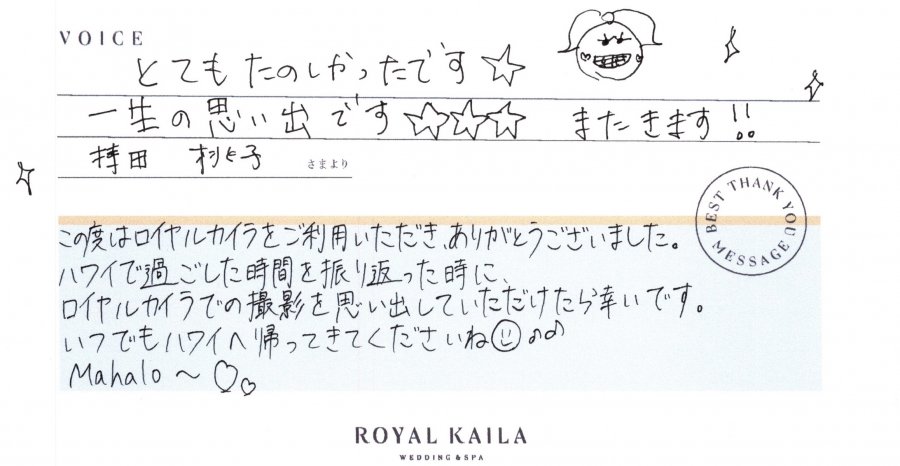 VOICE
とてもたのしかったです☆
一生の思い出です☆☆☆ またきます!!
持田 桃子 さまより
BEST THANK YOU MESSAGE
この度はロイヤルカイラをご利用いただき、ありがとうございました。
ハワイで過ごした時間を振り返った時に、
ロイヤルカイラでの撮影を思い出していただけたら幸いです。
いつでもハワイへ帰ってきてくださいね☺♪♪
Mahalo〜♡♡
ROYAL KAILA
WEDDING & SPA